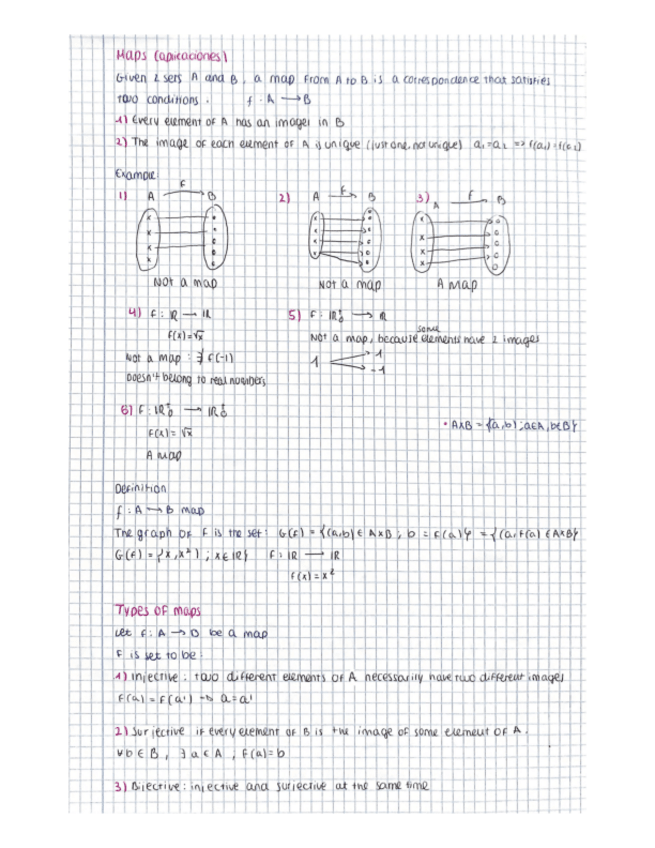 Maps (aplicaciones)
Given 2 sets A and B, a map from A to B is a correspondence that satisfies
two conditions. f: A → B
1) Every element of A has an image in B
2) The image of each element of A is unique (just one, not unique) a₁=a₂ => f(a₁)=f(a₂)
Example
1) A f B
2) A f B
3) A f B
Not a map
Not a map
A map
4) f: ℝ → ℝ
f(x)=√x
Not a map: ∄ f(-1)
Doesn't belong to real numbers
5) f: ℝ₀⁺ → ℝ
Not a map, because some elements have 2 images
1
1
-1
6) f: ℝ₀⁺ → ℝ₀⁺
f(x)= √x
A map
• A×B = {(a,b); a∈A, b∈B}
Definition
f: A → B map
The graph of f is the set: G(f) = {(a,b) ∈ A×B; b = f(a)} = {(a, f(a) ∈ A×B}
G(f) = {x, x²); x∈ℝ} f: ℝ → ℝ
f(x) = x²
Types of maps
Let f: A → B be a map
f is set to be:
1) Injective: two different elements of A necessarily have two different images
f(a) = f(a') → a=a'
2) Surjective if every element of B is the image of some element of A.
∀b ∈ B, ∃ a ∈ A; f(a)=b
3) Bijective: injective and surjective at the same time